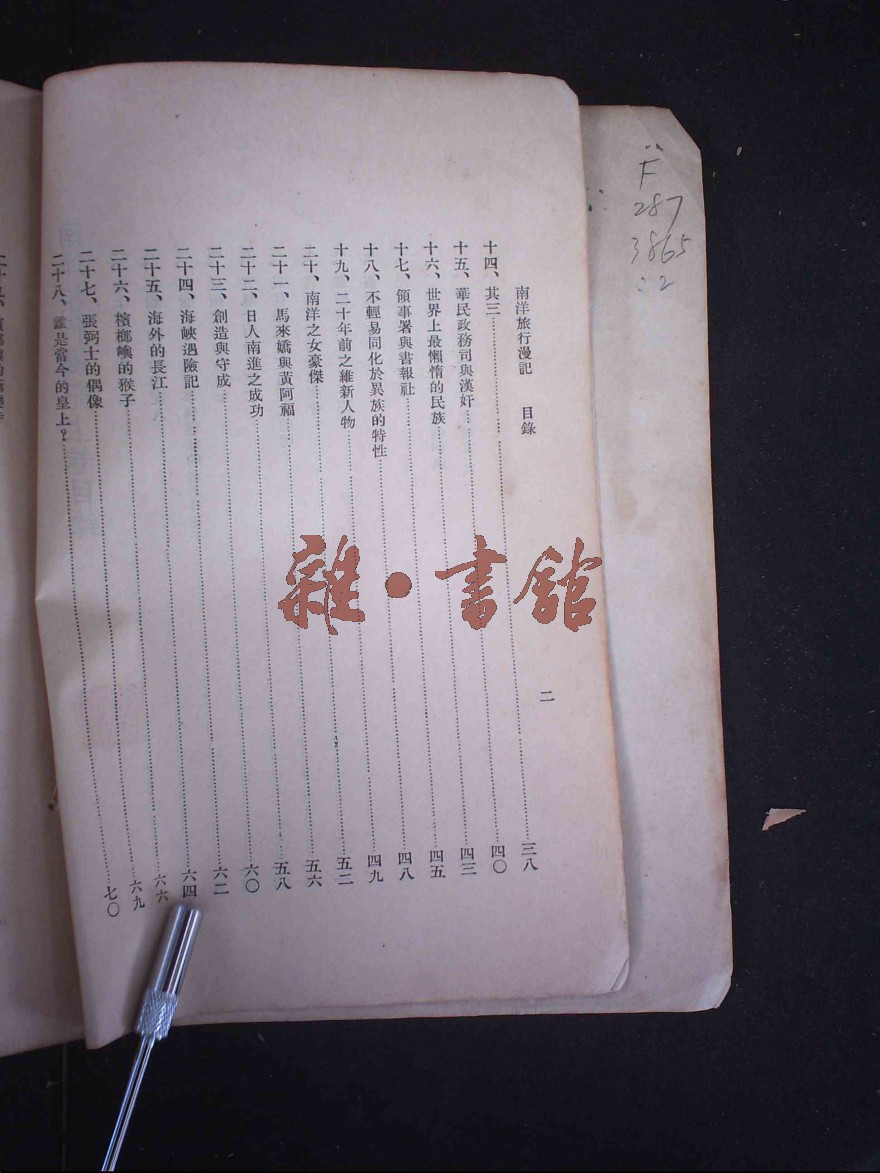 南洋旅行漫記 目錄 二
十四、其三……三八
十五、華民政務司與漢奸……四〇
十六、世界上最懶惰的民族……四三
十七、領事署與書報社……四五
十八、不輕易同化於異族的特性……四八
十九、二十年前之維新人物……四九
二十、南洋之女豪傑……五二
二十一、馬來嬌與黃阿福……五六
二十二、日人南進之成功……五八
二十三、創造與守成……六〇
二十四、海峽遇險記……六二
二十五、海外的長江……六四
二十六、檳榔嶼的猴子……六六
二十七、張弼士的偶像……六九
二十八、誰是當今的皇上？……七〇
F
287
3865
:2
雜·書館